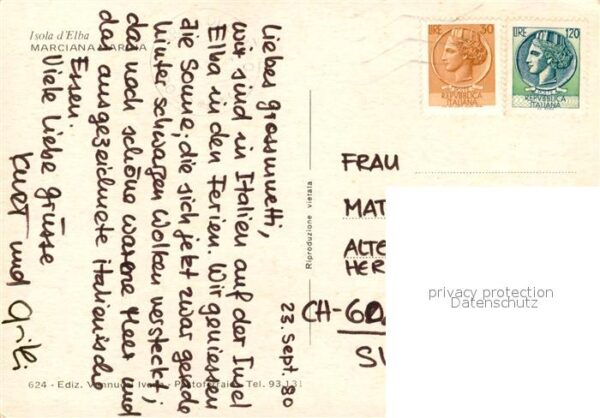 Isola d'Elba
MARCIANA MARINA
23. Sept. 80
Liebes grossmuetti,
wir sind in Italien auf der Insel
Elba in den Ferien. Wir geniessen
die Sonne, die sich jetzt zwar gerade
hinter schwarzen Wolken versteckt;
das noch schöne warme Meer und
das ausgezeichnete italienische
Essen.
Viele liebe grüsse
Kurt und
LIRE 30
REPVBBLICA
ITALIANA
LIRE 120
REPVBBLICA
ITALIANA
FRAU
MAT
ALTE
HER
CH-60
Riproduzione vietata
privacy protection
Datenschutz
624 - Ediz. Vannucci - Portoferraio - Tel. 93.131